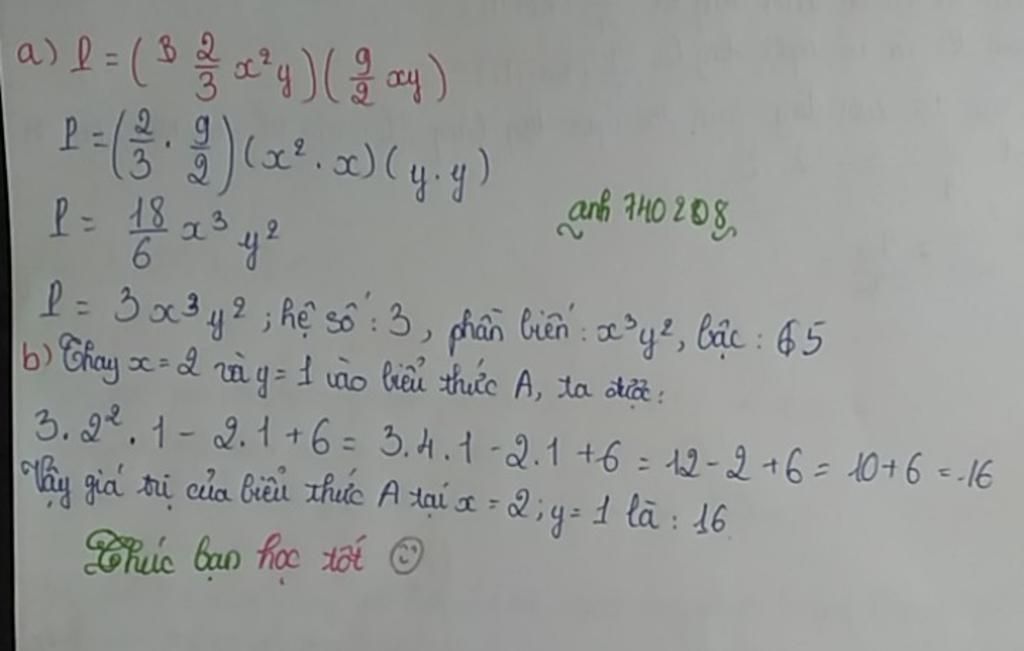 a) P = ( 3 2/3 x²y ) ( 9/2 xy )
P = ( 2/3 . 9/2 ) ( x² . x ) ( y . y )
P = 18/6 x³ y²
anh 740208
P = 3x³y² ; hệ số : 3 , phần biến : x³y² , bậc : 5
b) Thay x = 2 và y = 1 vào biểu thức A, ta được :
3 . 2² . 1 - 2 . 1 + 6 = 3 . 4 . 1 - 2 . 1 + 6 = 12 - 2 + 6 = 10 + 6 = 16
Vậy giá trị của biểu thức A tại x = 2 ; y = 1 là : 16
Chúc bạn học tốt